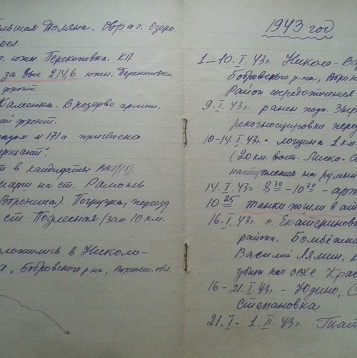 льшая Поляна. Овраг. Озеро.
южн. Перекоповка. КП
за выс 214,6 южн. Перекоповка
фронт.
Каменка. В резерве армии.
ий фронт.
казом № 171а присвоено
ержант".
т в кандидаты ВКП(б).
на ст. Рамонь
Погрузка, переезд
ст Подлесная (зап 10 км.
оложились в Николо-
а, Бобровского р-на, Воронеж. обл.
1943 год
1–10. I. 43 г. Николо-В
Бобровского р-на, Ворон
Район сосредоточения
9. I. 43 г. ранен подп. Зыр
рекогносцировке пере
10–14. I. 43 г. – лощина 1 км.
(20 км. вост.
наступления на румын
14. I. 43 г. 8 30 – 10 20 – арт
10 25 танки пошли в ат
16. I. 43 г. с. Екатеринов
района. Бомбёжка
Василий Лямин, к
16 – 21. I. 43 г. – Юдино, (
Степановка
21. I – 1. II. 43 г.